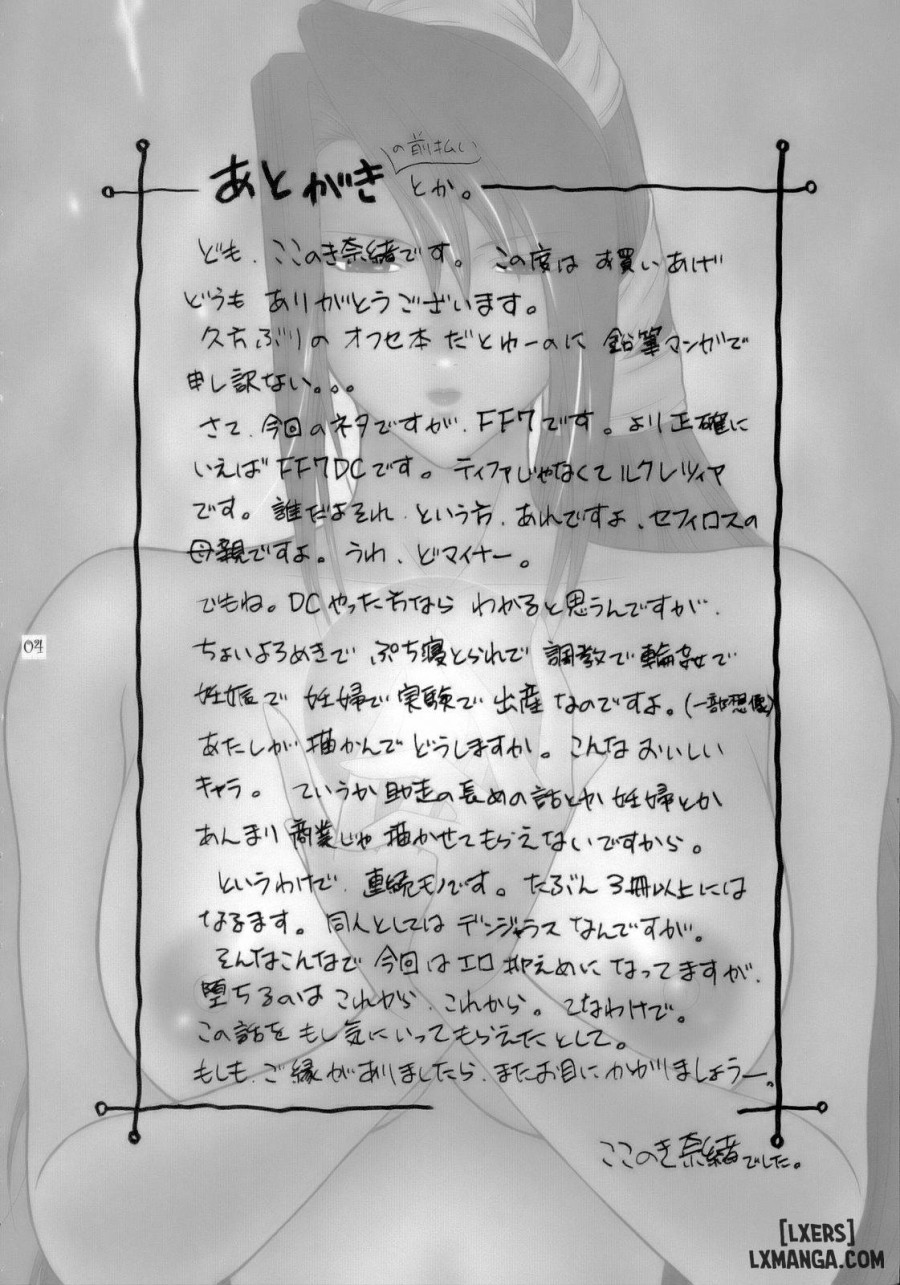 あとがき の前払い とか。
ども、ここのき奈緒です。この度は お買いあげ
どうも ありがとうございます。
久方ぶりの オフセ本 だとゆーのに 鉛筆マンガで
申し訳ない。。。
さて、今回のネタですが、FF7です。より正確に
いえば FF7DCです。ティファじゃなくて ルクレツィア
です。誰だよそれ、という方、あれですよ、セフィロスの
母親ですよ。うわ、どマイナー。
でもね。DCやった方なら わかると思うんですが、
ちょいよろめきで ぷち寝とられで 調教で輪姦で
妊娠で 妊婦で実験で 出産 なのですよ。(一部想像)
あたしが 描かんで どうしますか。こんな おいしい
キャラ。ていうか 助走の長めの話とか 妊婦とか
あんまり 商業じゃ 描かせてもらえないですから。
というわけで、連続モノです。たぶん 3冊以上には
なるます。同人としては デンジャラス なんですが。
そんなこんなで 今回は エロ 抑えめに なってますが、
堕ちるのは これから、これから。てなわけで。
この話を もし気にいってもらえた として。
もしも、ご縁がありましたら、またお目に かかりましょうー。
ここのき奈緒でした。
04
[LXERS]
LXMANGA.COM